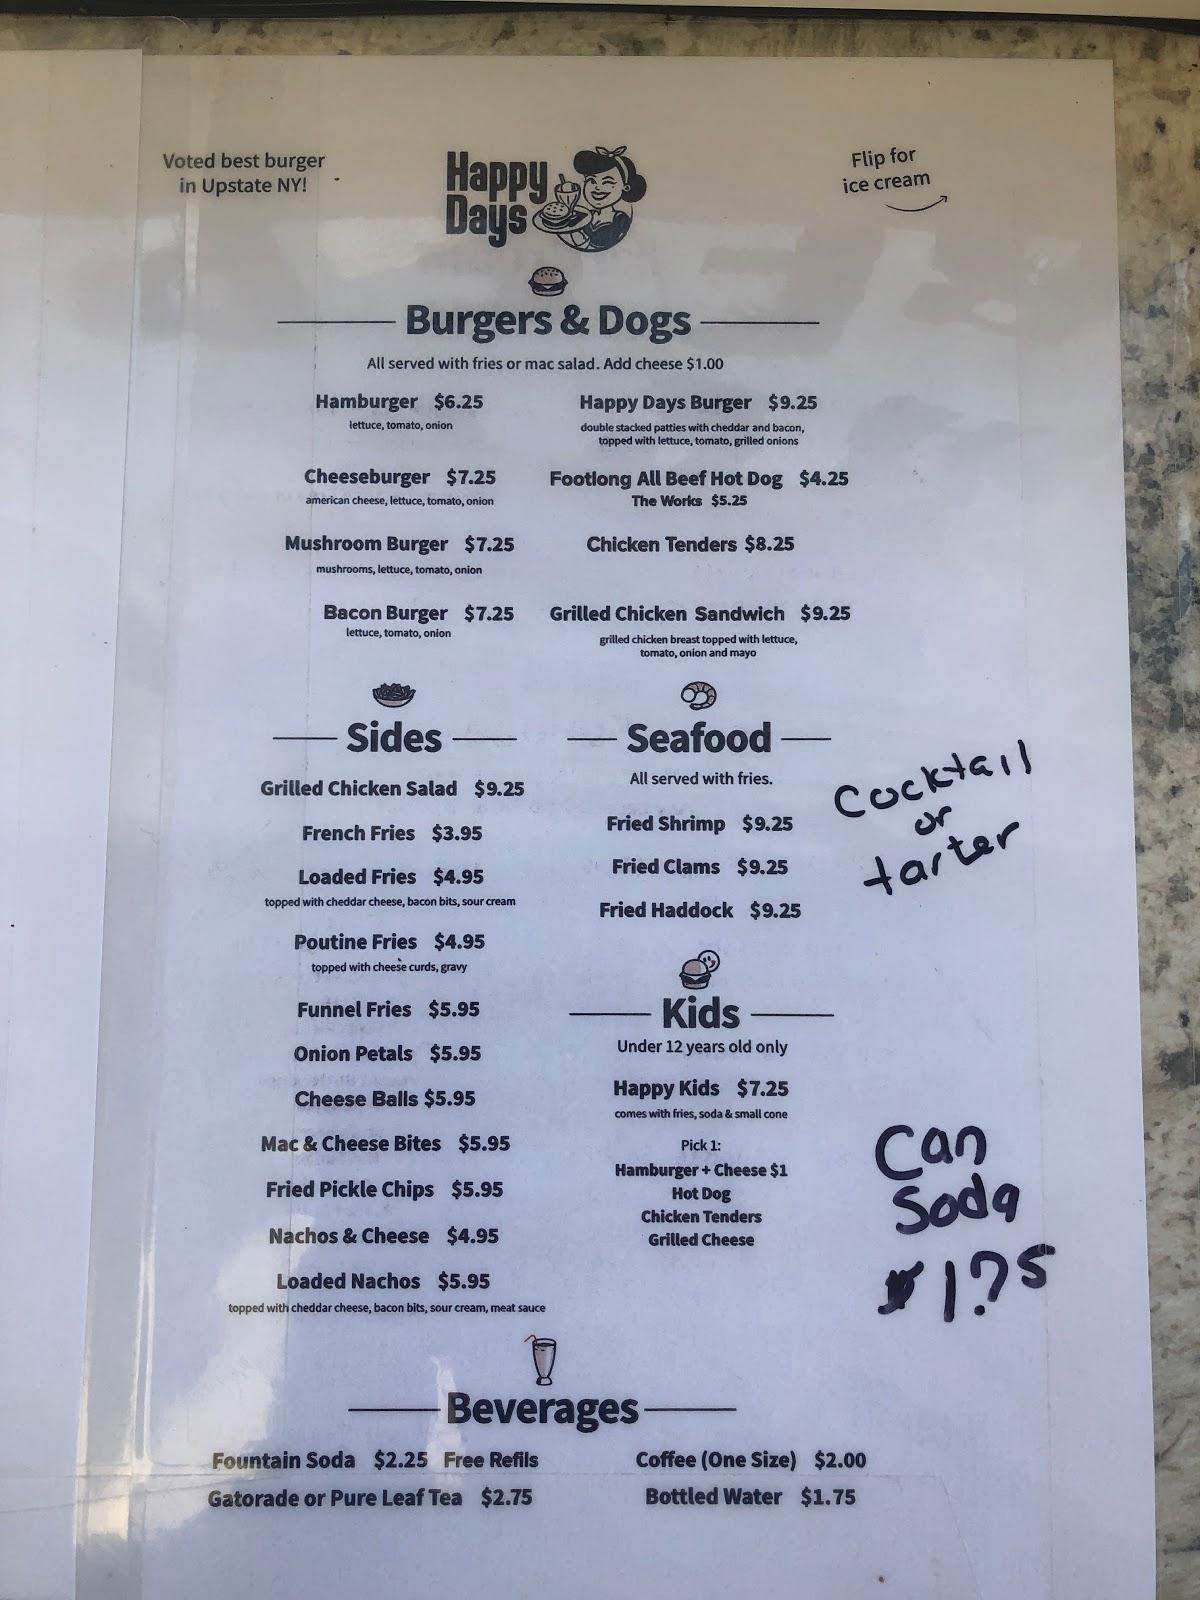 Voted best burger
in Upstate NY!
Happy
Days
Flip for
ice cream
Burgers & Dogs
All served with fries or mac salad. Add cheese $1.00
Hamburger $6.25
lettuce, tomato, onion
Cheeseburger $7.25
american cheese, lettuce, tomato, onion
Mushroom Burger $7.25
mushrooms, lettuce, tomato, onion
Bacon Burger $7.25
lettuce, tomato, onion
Happy Days Burger $9.25
double stacked patties with cheddar and bacon,
topped with lettuce, tomato, grilled onions
Footlong All Beef Hot Dog $4.25
The Works $5.25
Chicken Tenders $8.25
Grilled Chicken Sandwich $9.25
grilled chicken breast topped with lettuce,
tomato, onion and mayo
Sides
Grilled Chicken Salad $9.25
French Fries $3.95
Loaded Fries $4.95
topped with cheddar cheese, bacon bits, sour cream
Poutine Fries $4.95
topped with cheese curds, gravy
Funnel Fries $5.95
Onion Petals $5.95
Cheese Balls $5.95
Mac & Cheese Bites $5.95
Fried Pickle Chips $5.95
Nachos & Cheese $4.95
Loaded Nachos $5.95
topped with cheddar cheese, bacon bits, sour cream, meat sauce
Seafood
All served with fries.
Fried Shrimp $9.25
Fried Clams $9.25
Fried Haddock $9.25
Cocktail
or
tarter
Kids
Under 12 years old only
Happy Kids $7.25
comes with fries, soda & small cone
Pick 1:
Hamburger + Cheese $1
Hot Dog
Chicken Tenders
Grilled Cheese
Can
Soda
$1.75
Beverages
Fountain Soda $2.25 Free Refils
Gatorade or Pure Leaf Tea $2.75
Coffee (One Size) $2.00
Bottled Water $1.75